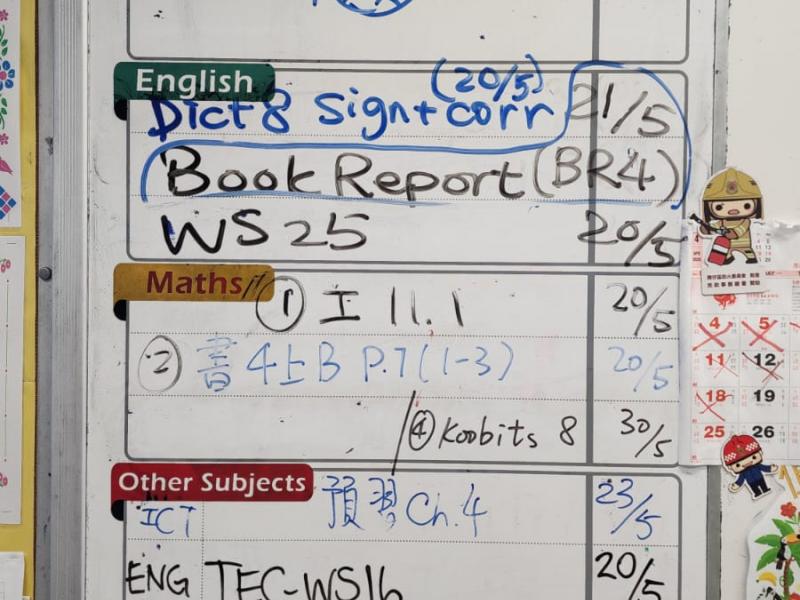 English
(20/5)
Dict 8 sign + corr 21/5
Book Report (BR4)
WS 25 20/5
Maths
① 工 11.1 20/5
② 書 4上B P.7 (1-3) 20/5
④ Koobits 8 30/5
Other Subjects
ICT 預習 Ch.4 23/5
ENG TEC-WS16 20/5
4 5
11 12
18 19
25 26